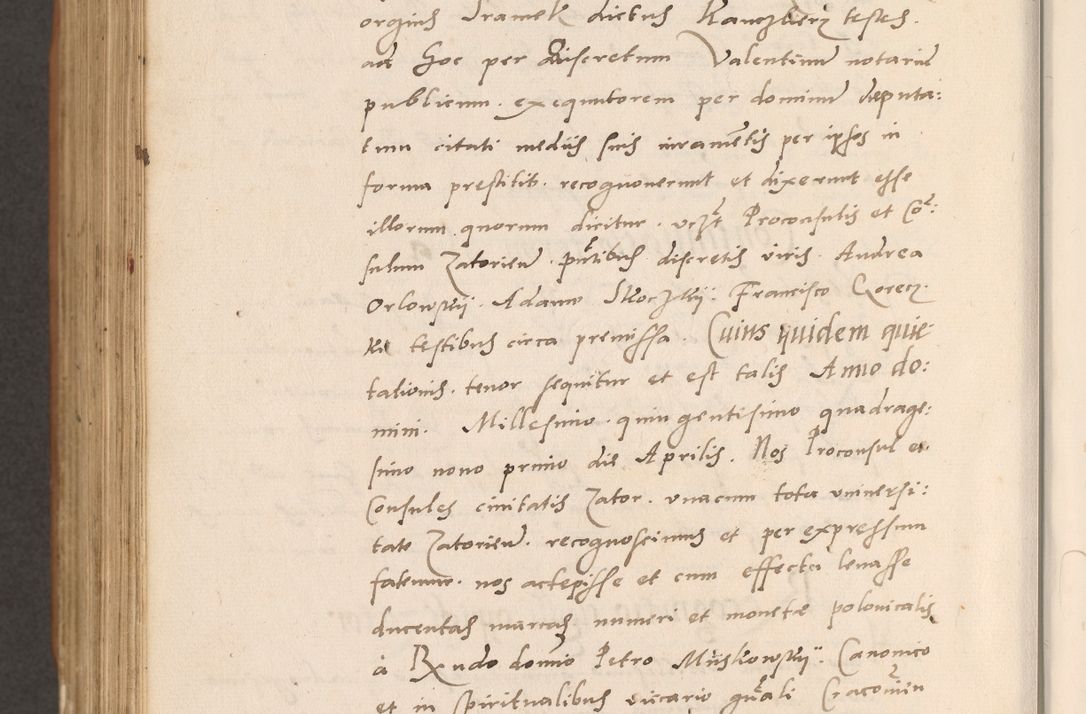 orgius Dramek dictus Kanczlierz testes.
ad hoc per discretum Valentinum notarium
publicum. exequutorem per dominum deputa:
tum citati mediis suis iuramentis per ipsos in
forma prestitis. recognoverunt et dixerunt esse
illorum quorum dicitur. Proconsulis et Co:
sulum Zatoriensium. discretis viris. Andrea
Orlowskij. Adamo Francisco
testibus circa premissa. Cuius quidem quie:
tationis. tenor sequitur et est talis Anno do:
mini. Millesimo. quingentisimo quadrage:
simo nono primo die Aprilis. Nos Proconsul et
Consules civitatis Zator. unacum tota universi:
tate Zatoriensi. recognoscimus et per expressum
fatemur. nos accepisse et cum effectu levasse
ducentas marcas numeri et monetæ polonicalis
à Rndo domino Petro Miskowskij. Canonico
et in spiritualibus vicario gnali Cracovien